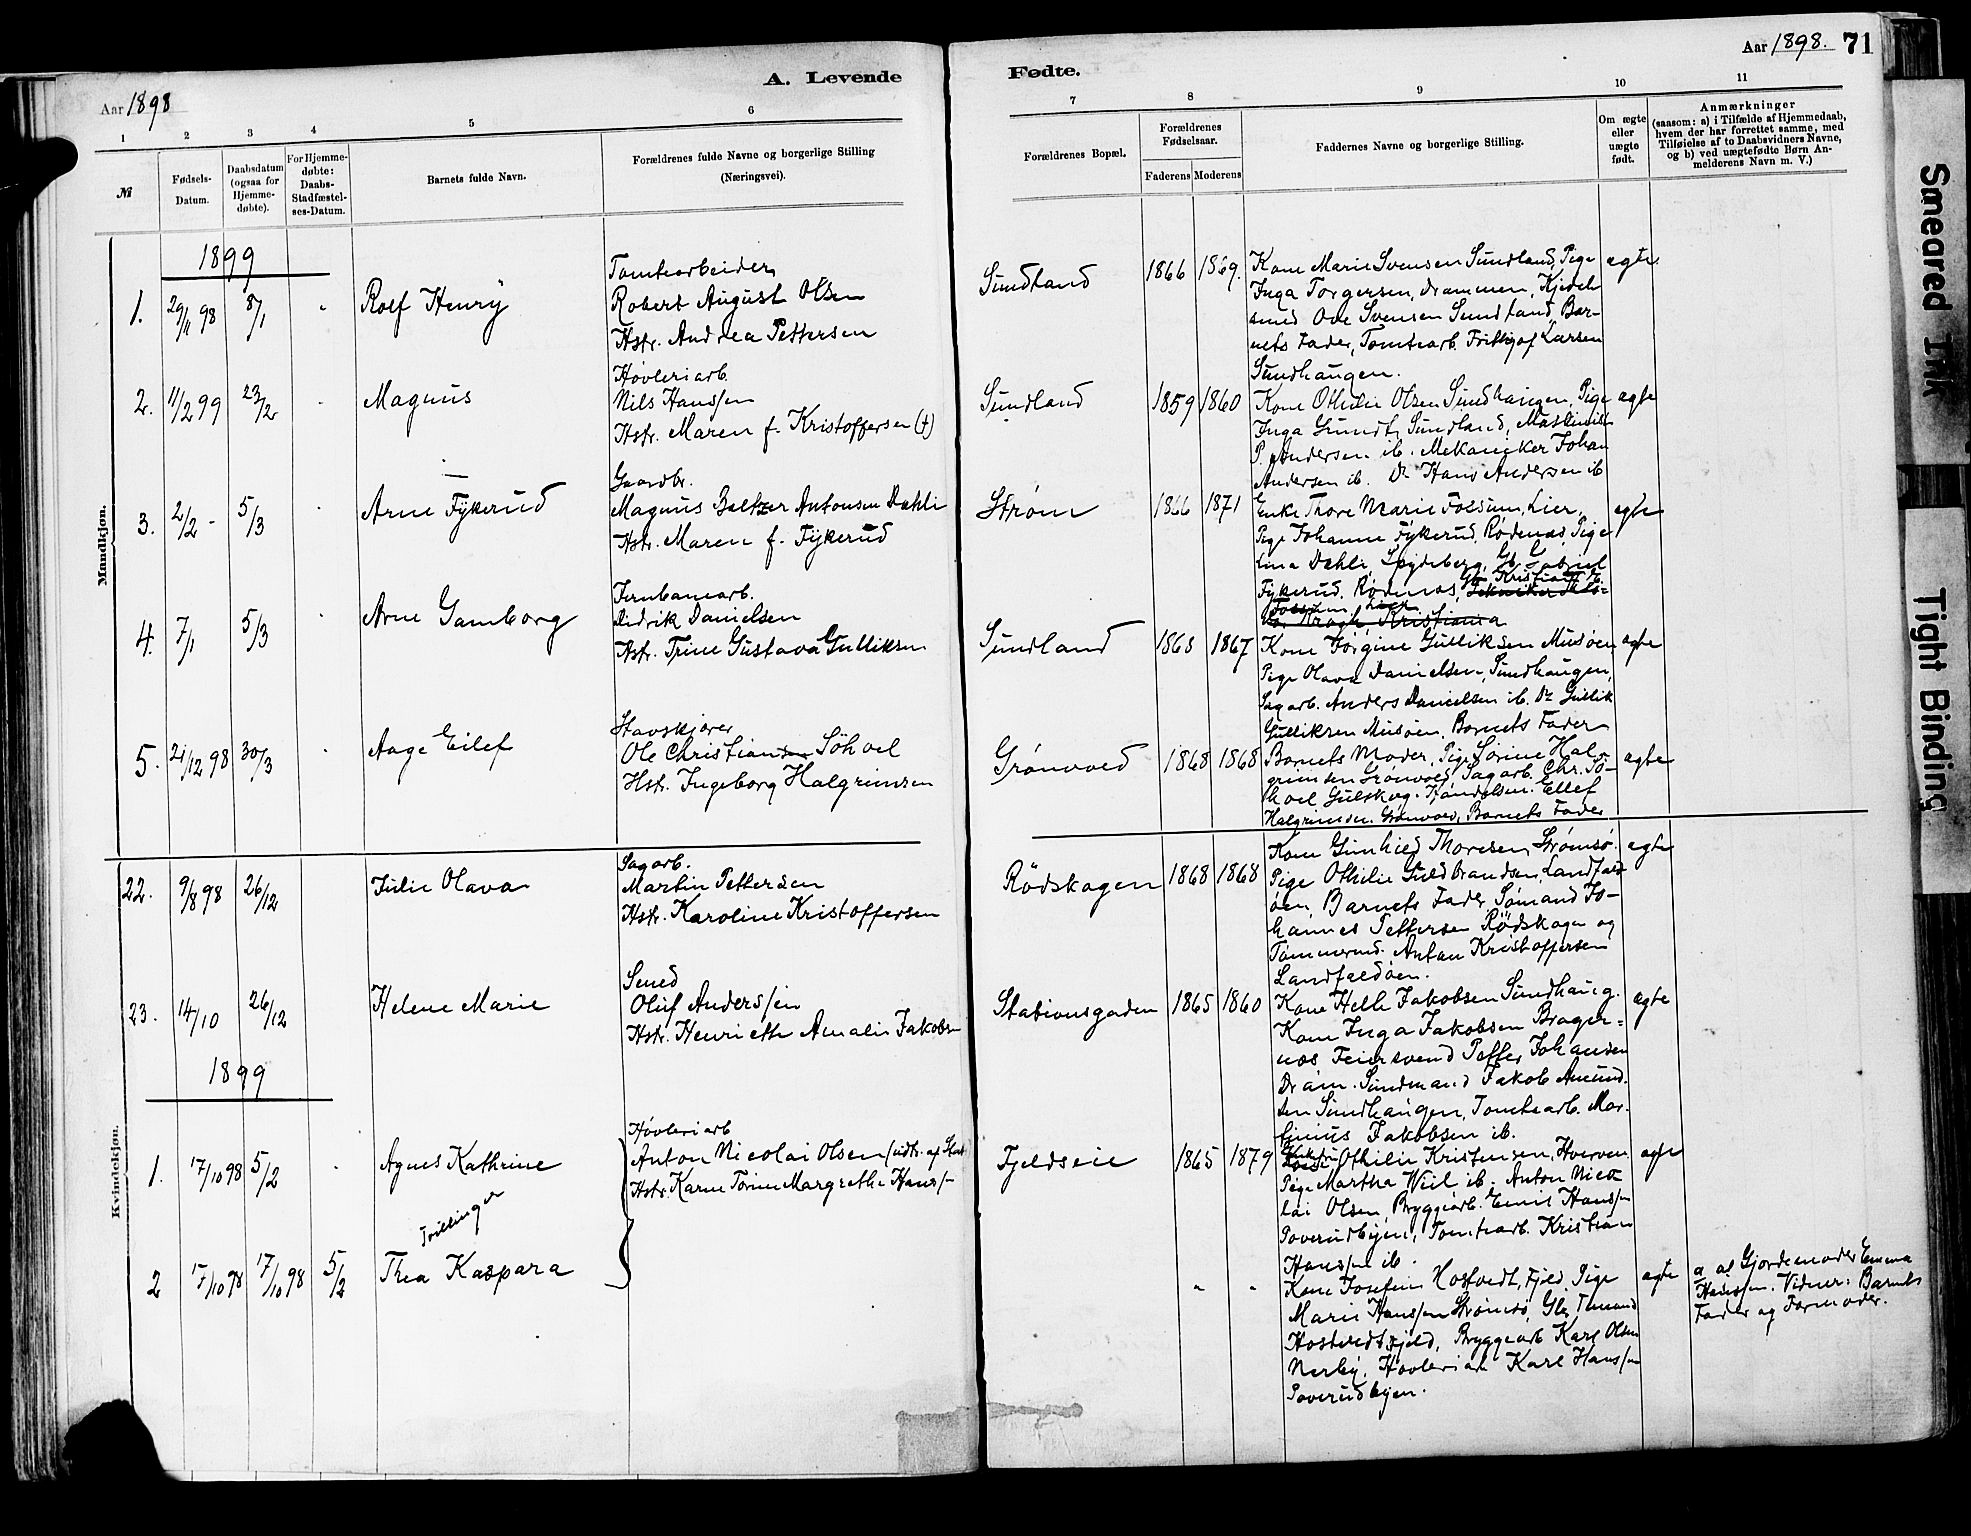 Aar 1898
A. Levende
Fødte.
Aar 1898. 71
1 2 3 4 5 6 7 8 9 10 11
№
Fødsels-
Datum.
Daabsdatum
(ogsaa for
Hjemme-
døbte).
For Hjemme-
døbte:
Daabs-
Stadfæstel-
ses-Datum.
Barnets fulde Navn.
Forældrenes fulde Navne og borgerlige Stilling
(Næringsvei).
Forældrenes Bopæl.
Forældrenes
Fødselsaar.
Faderens Moderens
Faddernes Navne og borgerlige Stilling.
Om ægte
eller
uægte
født.
Anmærkninger
(saasom: a) i Tilfælde af Hjemmedaab,
hvem der har forrettet samme, med
Tilføielse af to Daabsvidners Navne,
og b) ved uægtefødte Børn An-
melderens Navn m. V.)
Mandkjøn.
1899
1. 29/11 98 8/1 Rolf Henry
Tomtearbeider
Robert August Olsen
Hstr. Andrea Pettersen
Sundland 1866 1869.
Kone Marie Svensen Sundland, Pige
Inga Torgersen, Drammen, Kjedel-
smed Ove Svensen Sundland, Bar-
nets Fader, Tomtearb. Frithjof Larsen
Sundhaugen.
ægte
2. 11/2 99 23/2 Magnus
Høvleriarb.
Nils Hanssen
Hstr. Maren f. Kristoffersen (†)
Sundland 1859 1860
Kone Othilie Olsen Sundhaugen, Pige
Inga Grundt, Sundland, Maskinist
P. Andersen ib. Mekaniker Johan
Andersen ib. Do Hans Andersen ib
ægte
3. 2/2 - 5/3 Arne Fykerud
Gaardbr.
Magnus Baltzer Antonsen Dahli
Hstr. Maren f. Fykerud
Strøm 1866 1871
Enke Thore Marie Fossum, Lier,
Pige Johanne Fykerud, Rødenæs, Pige
Lina Dahli, Spydeberg, Gb. Gabriel
Fykerud, Rødenæs, Gb. Kristian
Fossum, Lier
Kragh, Kristiania
ægte
4. 7/1 5/3 Arne Gamborg
Jernbanearb.
Didrik Danielsen
Hstr. Trine Gustava Gulliksen
Sundland 1868 1867
Kone Jørgine Gulliksen Musøen
Pige Olava Danielsen, Sundhaugen,
Sagarb. Anders Danielsen ib. Do Gullik
Gulliksen Musøen, Barnets Fader
ægte
5. 21/12 98 30/3 Aage Eilef
Stavskjører
Ole Christiansen Söhoel
Hstr. Ingeborg Halgrimsen
Grønvold 1868 1868
Barnets Moder, Pige Sørine Hal-
grimsen Grønvold, Sagarb. Chr. Sö-
hoel Gulskog. Ellef
Halgrimsen Grønvold, Barnets Fader
ægte
Kvindekjøn.
22. 9/8 98 26/12 Julie Olava
Sagarb.
Martin Pettersen
Hstr. Karoline Kristoffersen
Rödskogen 1868 1868
Kone Gunhild Thoresen, Strømsø.
Pige Othilie Guldbrandsen, Landfald-
øen, Barnets Fader, Sømand Jo-
hannes Pettersen Rödskogen og
Tømmermd. Anton Kristoffersen
Landfaldøen.
ægte
23. 14/10 26/12 Helene Marie
Smed
Oluf Anderssen
Hstr. Henriette Amalie Jakobsen
Stationsgaden 1865 1860
Kone Helle Jakobsen Sundhaug.
Kone Inga Jakobsen Brager-
næs, Feiersvend Petter Johansen
Dram. Sundmand Jakob Amund-
sen Sundhaugen, Tomtearb. Mar-
tinius Jakobsen ib.
ægte
1899
1. 17/10 98 5/2 Agnes Kathrine
Høvleriarb
Anton Nicolai Olsen (udtr. af Stat
Hstr. Karen Torine Margrethe Hanss-
Fjeldseie 1865 1879
Othilie Kristensen, Horven.
Pige Martha Wiil ib. Anton Nico-
lai Olsen, Bryggearb. Emil Hanssen
Poverudbyen, Tomtearb. Kristian
Hanssen ib.
ægte
Tvillinger
2 17/10 98 17/10 98 5/2 Thea Kaspara
" "
Kone Josefine Hostvedt, Fjeld, Pige
Marie Hanssen Strømsø, Gb.
Hostvedt, Fjeld, Bryggearb Karl Olsen
Nerby, Høvleriarb Karl Hanssen
Poverudbyen.
ægte
a. af Gjordemoder Emma
Hanssen. Vidner: Barnets
Fader og Farmoder.
Smeared Ink
Tight Binding